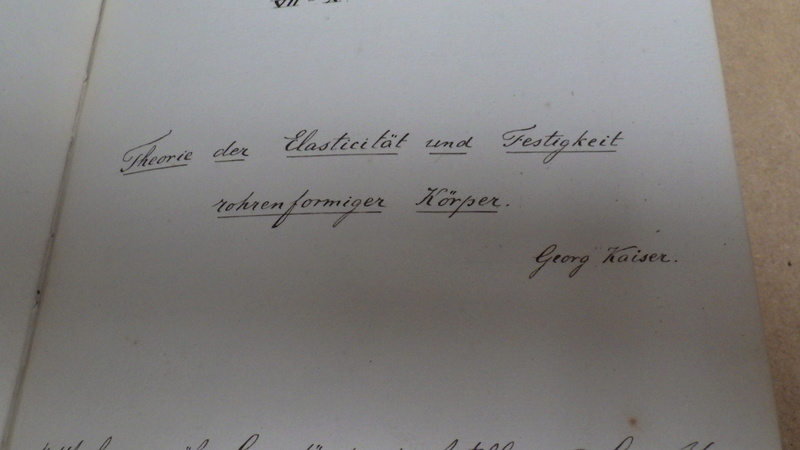 Theorie der Elasticität und Festigkeit
rohrenformiger Körper.
Georg Kaiser.